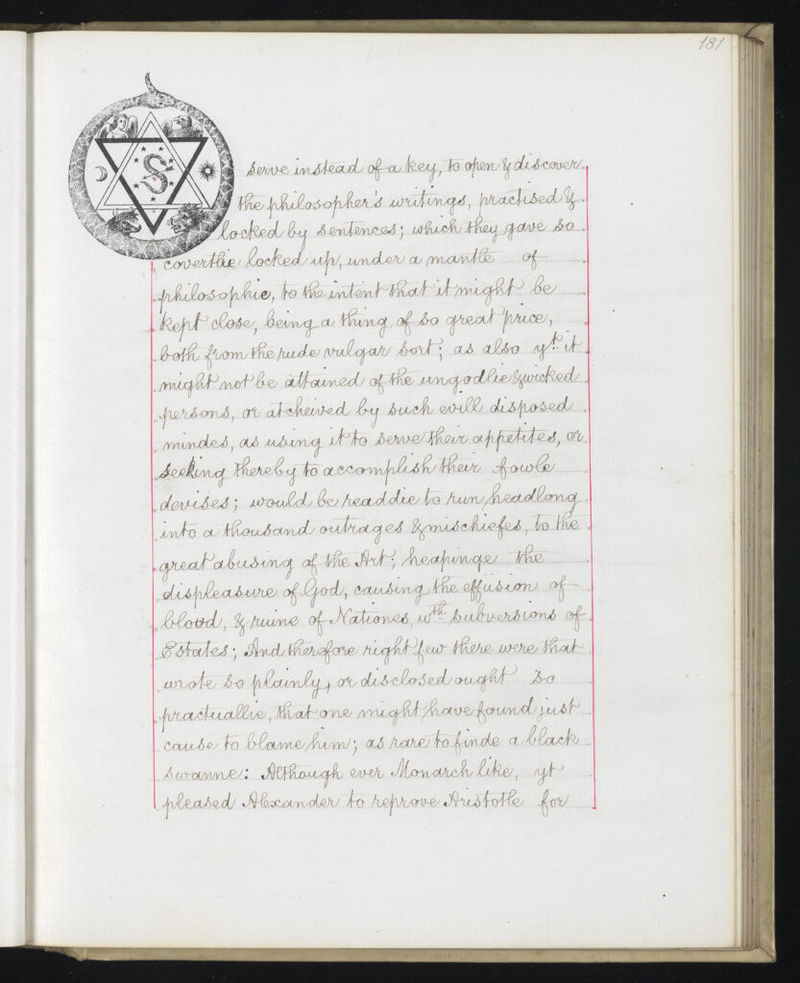 181
serve instead of a key, to open & discover
the philosopher's writings, practised &
locked by sentences; which they gave so
covertlie locked up, under a mantle of
philosophie, to the intent that it might be
kept close, being a thing of so great price,
both from the rude vulgar sort; as also yt it
might not be attained of the ungodlie & wicked
persons, or atcheived by such evill disposed
mindes, as using it to serve their appetites, or
seeking thereby to accomplish their fowle
devises; would be readdie to run headlong
into a thousand outrages & mischiefes, to the
great abusing of the Art; heapinge the
displeasure of God, causing the effusion of
bloud, & ruine of Nationes, wth subversions of
Estates; And therefore right few there were that
wrote so plainly, or disclosed ought so
practuallie, that one might have found just
cause to blame him; as rare to finde a black
swanne: Although ever Monarch like, yt
pleased Alexander to reprove Aristotle for